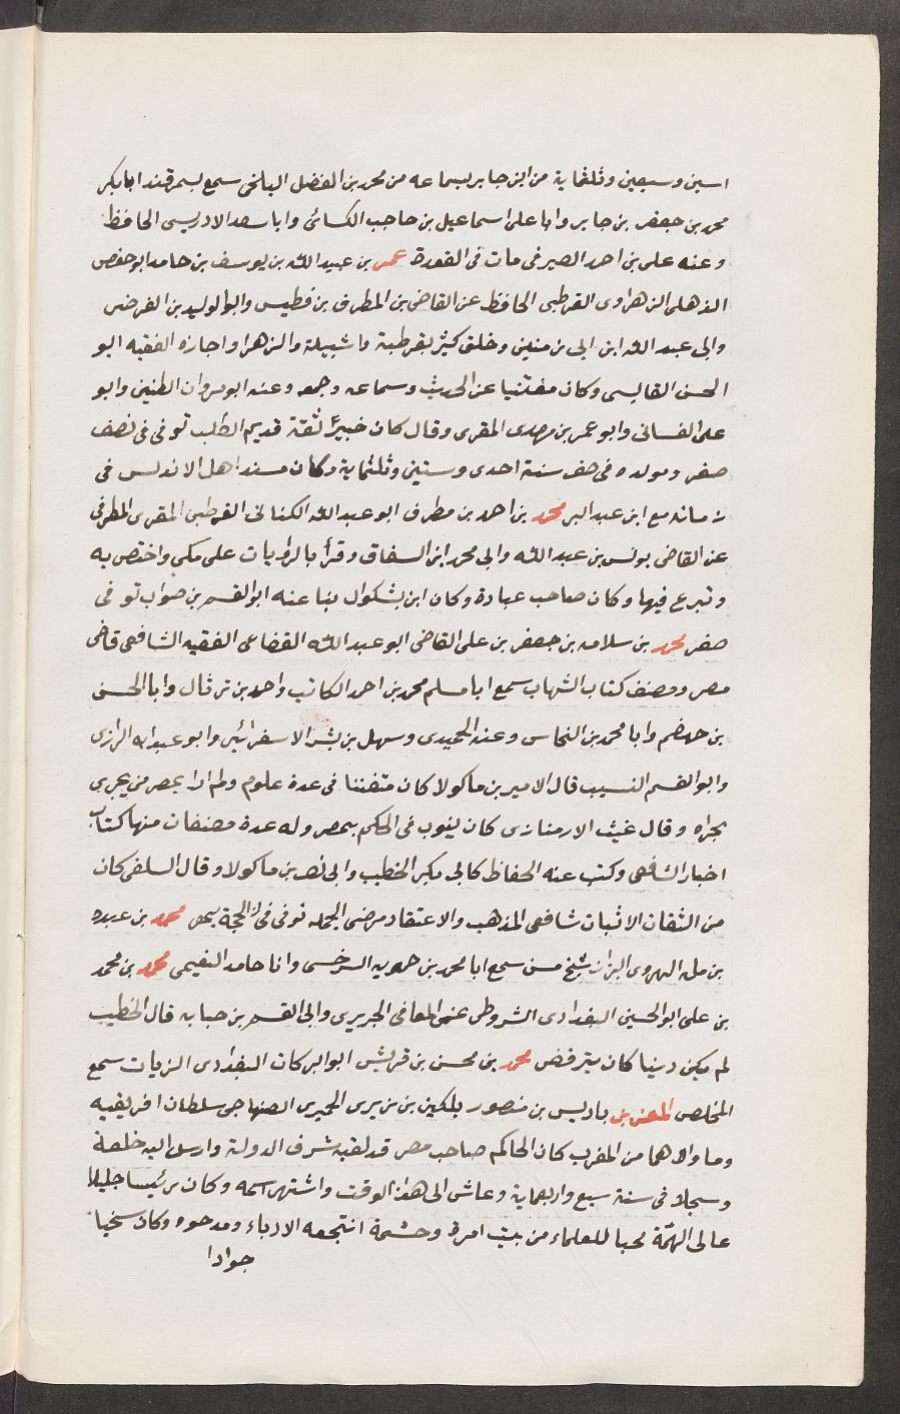 اسين وسبعين وثلثماية من ابن جابر بسماعه من محمد بن الفضل البلخى سمع بسمرقند ابا بكر
محمد بن جعفر بن جابر وابا على اسماعيل بن حاجب الكسائى وابا سعد الادريسى الحافظ
وعنه على بن احمد الصيرفى مات فى القعدة عمر بن عبيد الله بن يوسف بن حامد ابو حفص
الذهلى الزهراوى القرطبى الحافظ عن القاضى بن المطرف بن فطيس وابو الوليد بن الفرضى
وابى عبد الله ابن ابى زمنين وخلق كثير بقرطبة واشبيلة والزهرا واجازه الفقيه ابو
الحسن القابسى وكان معتنيا عن الحديث وسماعه وجمعه وعنه ابو مروان الطبنى وابو
على الغسانى وابو عمر بن مهدى المقرى وقال كان خبيرًا ثقة قديم الطلب توفى فى نصف
صفر ومولده فى صفر سنة احدى وستين وثلثماية وكان مسند اهل الاندلس فى
زمانه مع ابن عبد البر محمد بن احمد بن مطرف ابو عبد الله الكنانى القرطبى المقرى المطرفى
عن القاضى يونس بن عبد الله وابى محمد ابن السقاق وقرأ بالروايات على مكى واختص به
وتبرع فيها وكان صاحب عبادة وكان ابن بشكوال بنا عنه ابو القسم بن صواب توفى
صفر محمد بن سلامه بن جعفر بن على القاضى ابو عبد الله القضاعى الفقيه الشافعى قاضى
مصر ومصنف كتاب الشهاب سمع ابا مسلم محمد بن احمد الكاتب واحمد بن ثرثال وابا الحسن
بن جهضم وابا محمد بن النحاس وعنه الحميدى وسهل بن بشر الاسفرائنى وابو عبد الله الرازى
وابو القسم النسيب قال الامير بن ماكولا كان متفننا فى عدة علوم ولم ار ا بمصر من يجرى
مجراه وقال غيث الارمنازى كان ينوب فى الحكم بمصر وله عدة مصنفات منها كتاب
اخبار الشافعى وكتب عنه الحفاظ كابى بكر الخطيب وابى نصر بن ماكولا وقال السلفى كان
من الثقات الاثبات شافعى المذهب والاعتقاد مرضى الجمله توفى فى ذى الحجة بمصر محمد بن عبيده
بن مله الهروى البزاز شيخ مسن سمع ابا محمد بن حمويه السرخسى وابا حامد النعيمى محمد بن محمد
بن على ابو الحسين البغدادى الشروطى عن المعافى الجريرى وابى القسم بن حبابه قال الخطيب
لم يكن دينا كان يترفض محمد بن محسن بن قريش ابو البركات البغدادى الزيات سمع
المخلص المعز بن باديس بن منصور بلكين بن زيرى الحميرى الصنهاجى سلطان افريقيه
وما والاهما من المغرب كان الحاكم صاحب مصر قد لقبه شرف الدولة وارسل اليه خلعة
وسجلا فى سنة سبع واربعماية وعاش الى هذا الوقت واشتهر اسمه وكان رئيسا جليلا
عالى الهمّة محبا للعلماء من بيت امرة وحشمة انتجعه الادباء ومدحوه وكان سخيا
جوادا